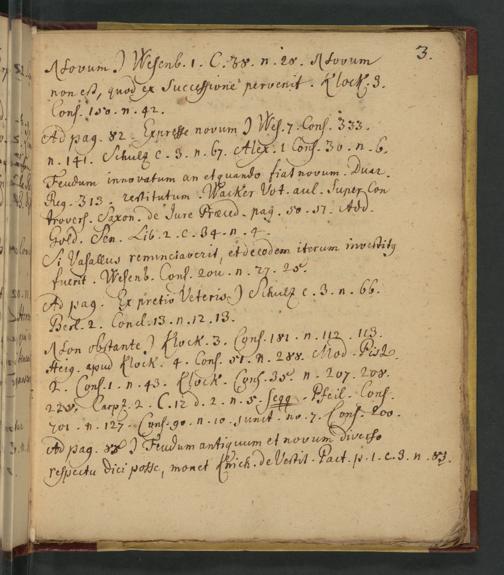 3.
Novum) Wesenb. 1. C. 38. n. 28. Novum
non est, quod ex Successione pervenit. Klock. 3.
Cons. 150. n. 42.
Ad pag. 82. Expresse novum) Wes. 7. Cons. 333.
n. 141. Schulz c. 3. n. 67. Alex. 1 Cons. 30. n. 6.
Feudum innovatum an et quando fiat novum. Duar.
pag. 313. restitutum. Wacker Vot. aul. Super Con
trovers. Saxon. de Jure Præced. pag. 50. 51. Add.
Gold. Sen. Lib. 2. c. 34. n. 4.
Si Vasallus renunciaverit, et de eodem iterum investitg
fuerit. Wesenb. Cons. n. 27. 28.
Ad pag. Ex pretio Veteris) Schulz c. 3. n. 66.
Berl. 2. Concl. 13. n. 12. 13.
Non obstante) Klock. 3. Cons. 181. n. 112. 113.
Heig. apud Klock. 4. Cons. 51. n. 288. Mod. Pist.
2. Cons. 1. n. 43. Klock. Cons. 35. n. 207. 208.
Carpz. 2. C. 12 d. 2. n. 5. seqq. Pfeil. Cons.
201. n. 127. Cons. 90. n. 10. junct. no. 7. Cons. 200.
Ad pag. ) Feudum antiquum et novum diverso
respectu dici posse, monet Knich. de Vestit. Pact. p. 1. c. 3. n. 83.